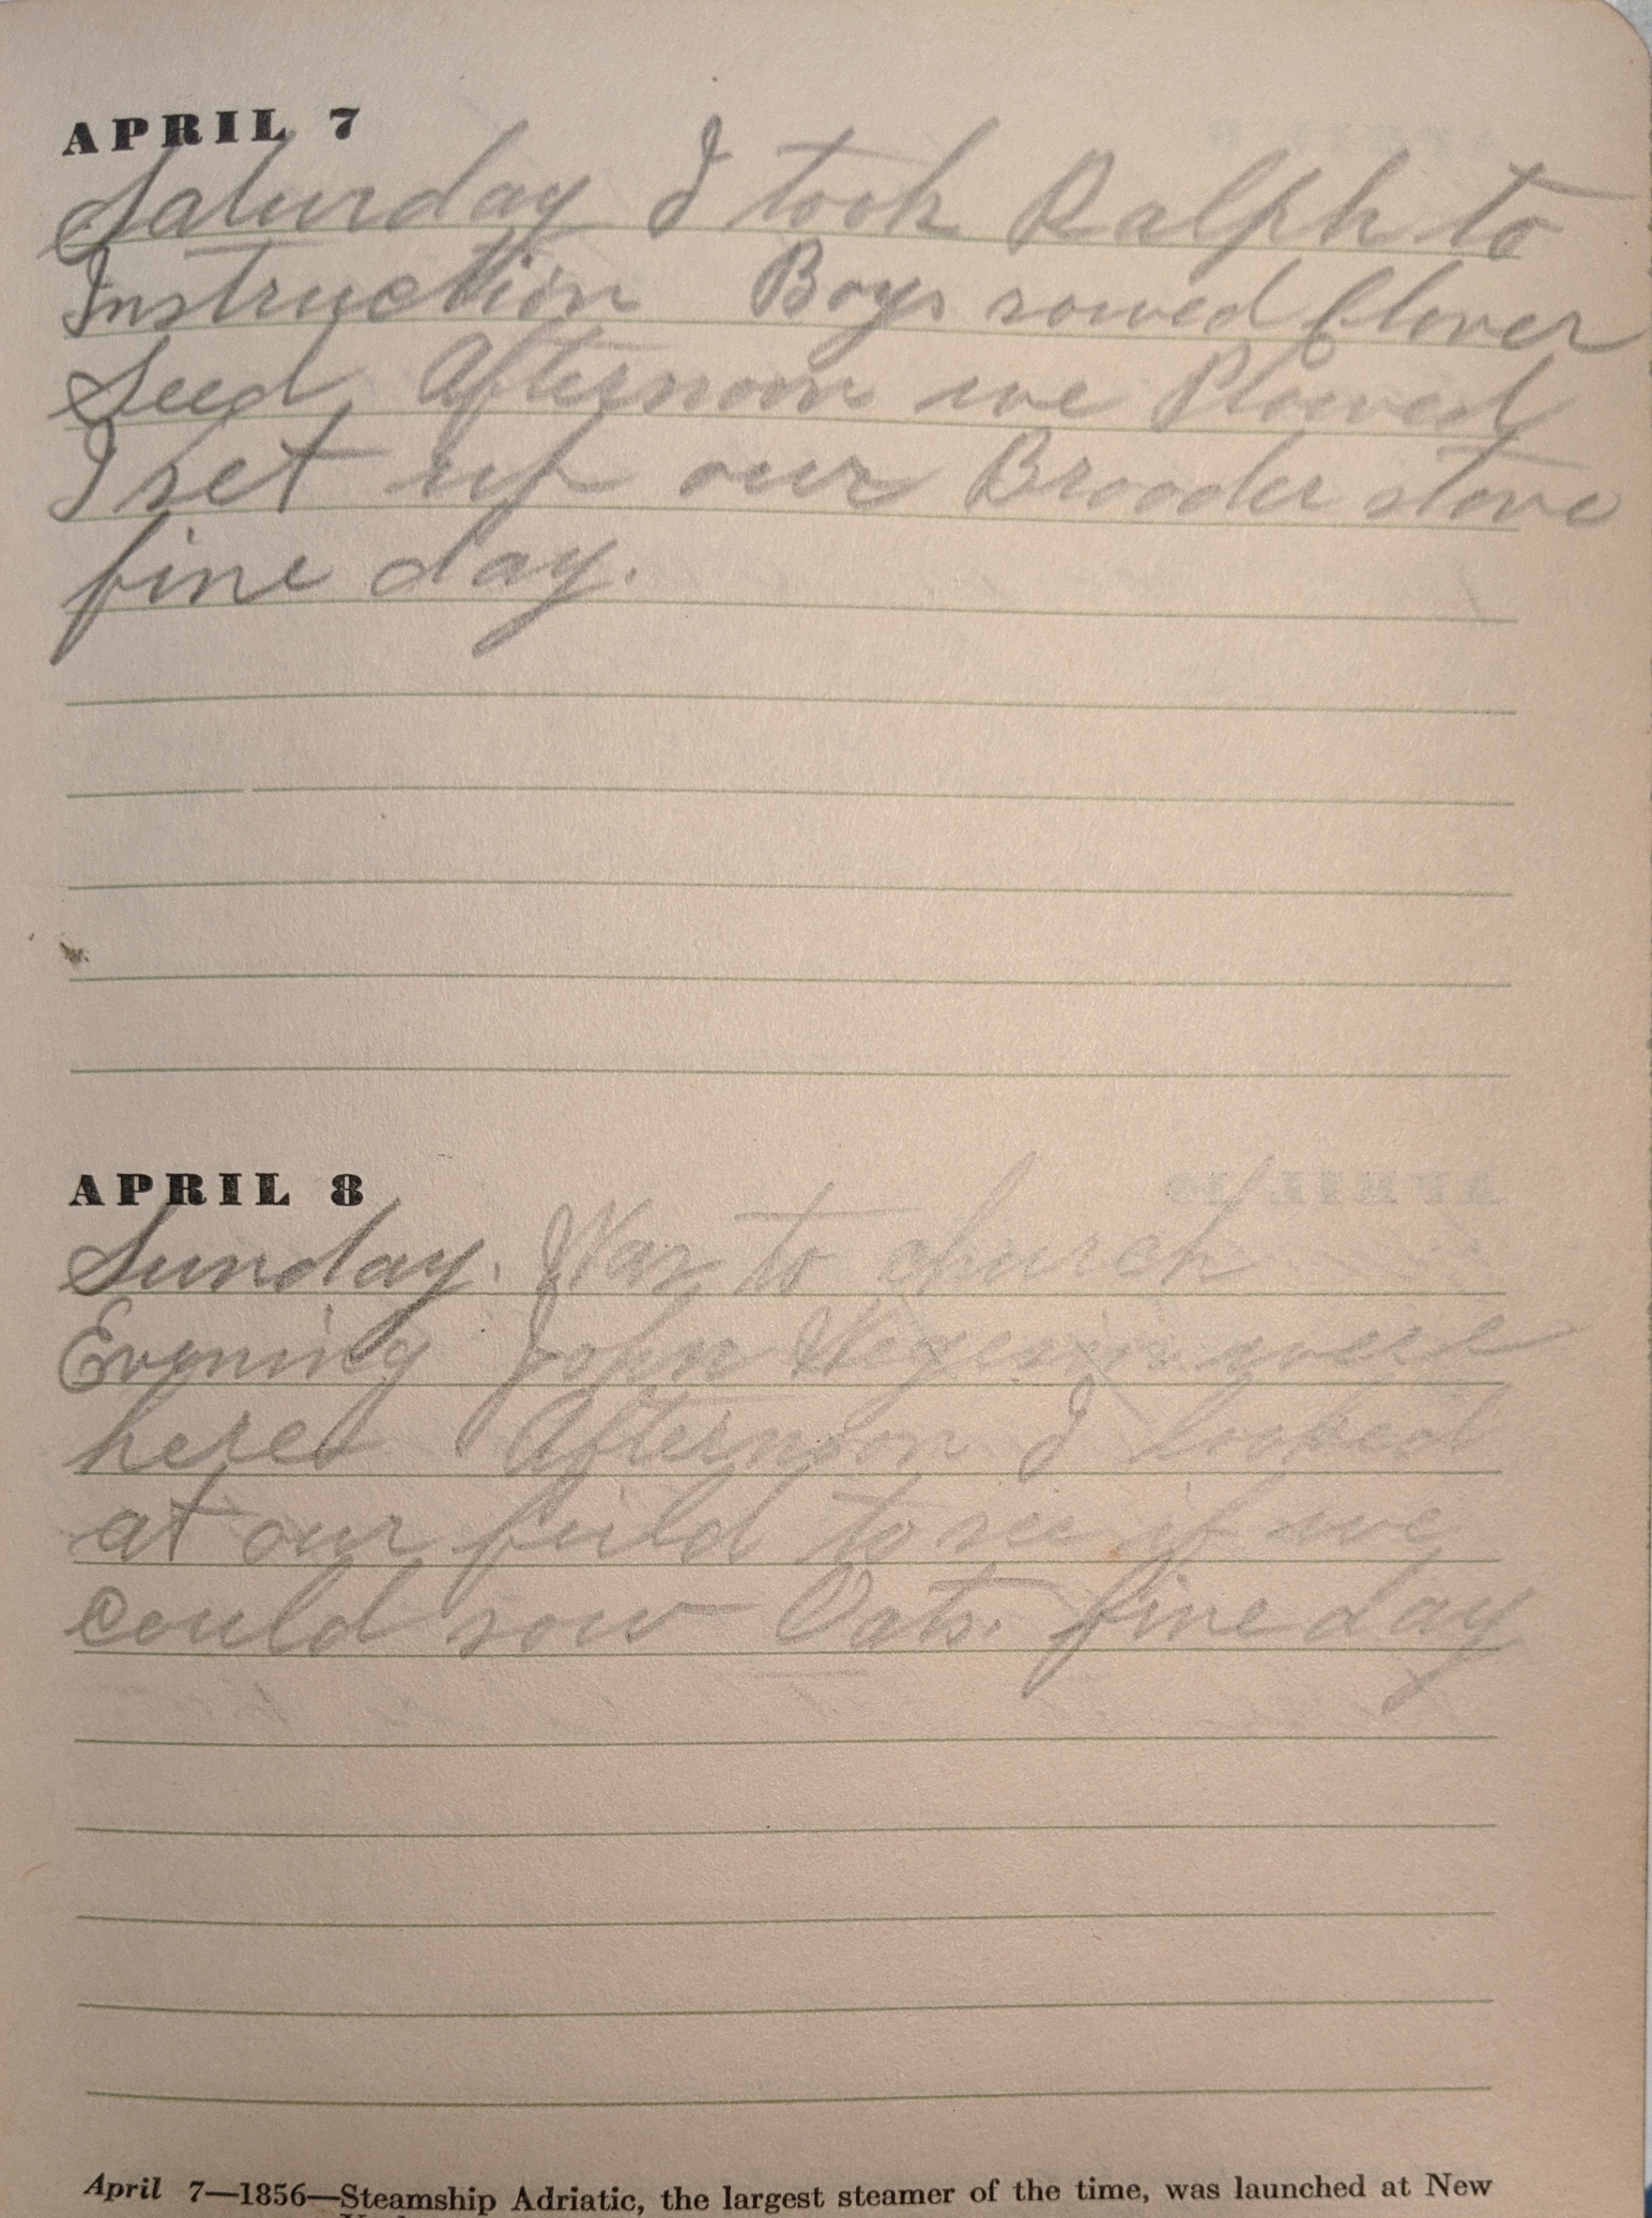 APRIL 7
Saturday I took Ralph to
Instruction Boys sowed Clover
Seed. Afternoon we Plowed
I set up our Brooder stove
fine day.
APRIL 8
Sunday. Was to church
Evening John were
here Afternoon I looked
at our feild to see if we
could sow Oats. fine day
April 7—1856—Steamship Adriatic, the largest steamer of the time, was launched at New